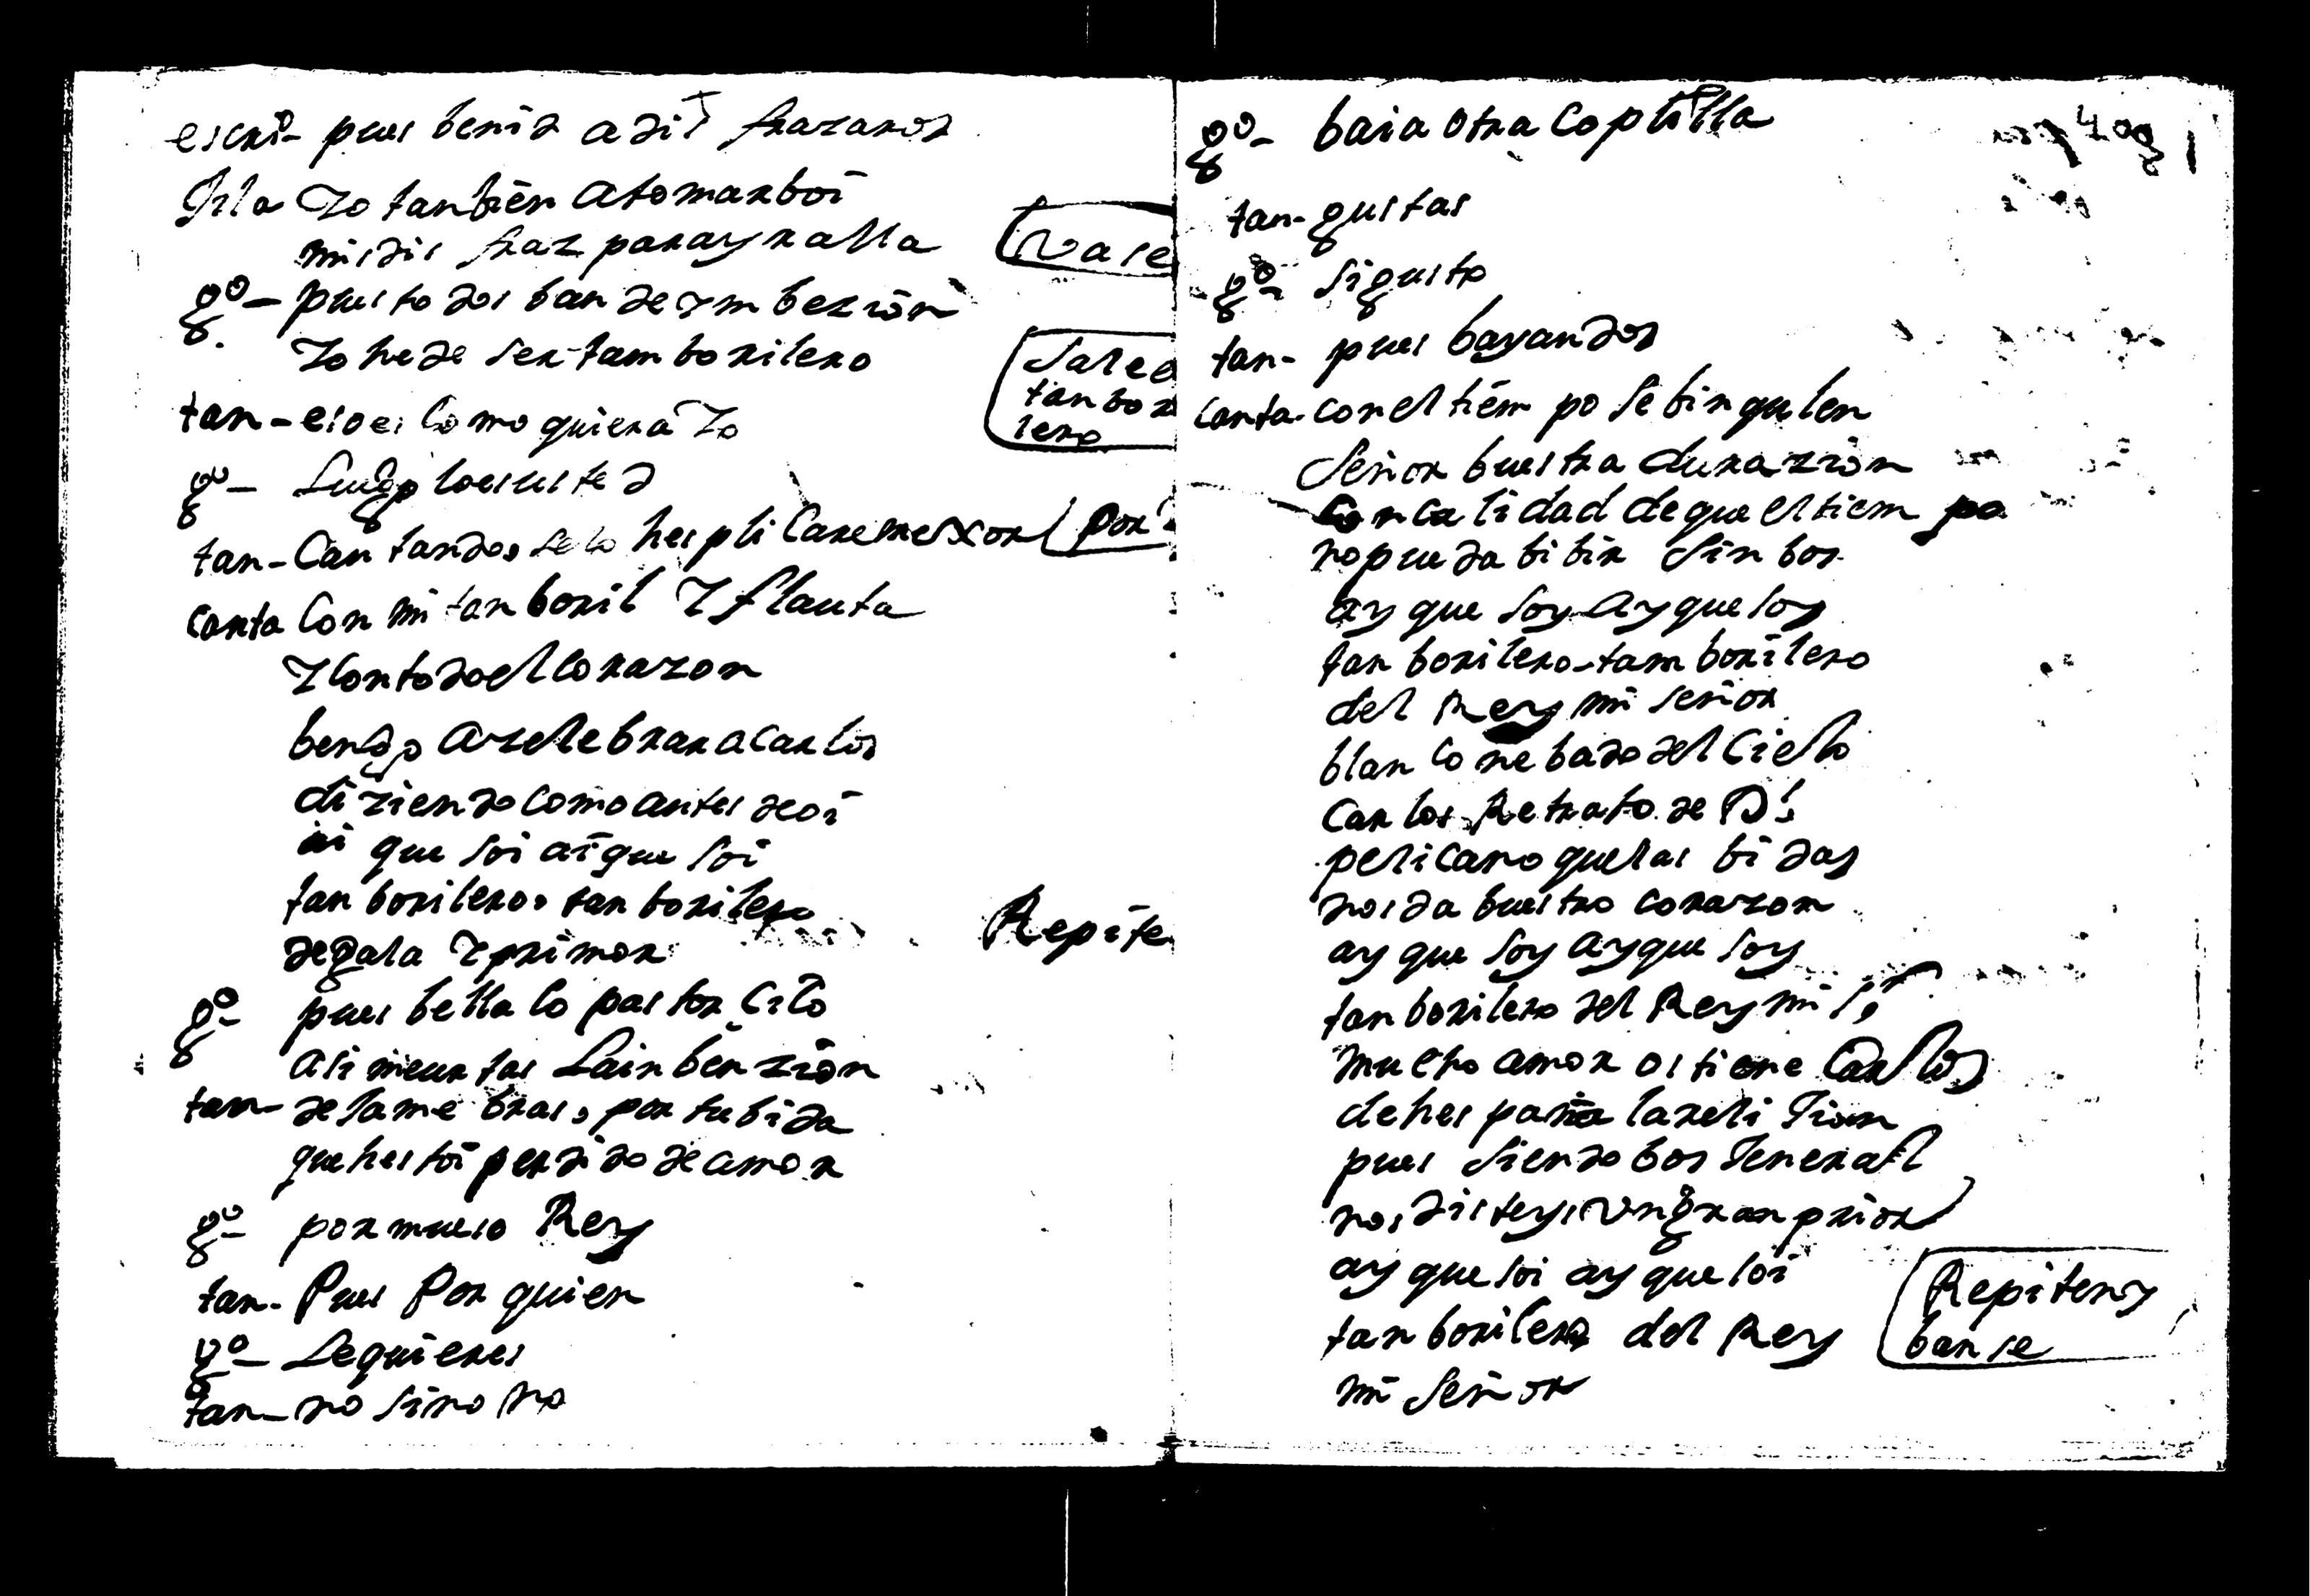 escriº- pues benid a disfrazaros
Isla Yo tanbien a tomar boi
mi disfraz para yr alla
Vase
gº- pues todos ban de ynbezion
Yo he de ser tamborilero
Sale el
tanbori
lero
tan- eso es como quiera Yo
gº- Luego lo es usted
tan- Cantando, se lo hesplicare mexor
Por
canta Con mi tanboril Y flauta
Y con todo el corazon
bengo a zelebrar a Carlos
diziendo como antes de oi
ai que soi ai que soi
tanborilero, tanborilero
de gala Y primor
Repite
gº- pues bella co pastorcito
asi mientas la inbenzion
tan- desame bras, por tu bida
que hestoi perdido de amor
gº- por mueso Rey
tan- Pues Por quien
gº- Le quieres
tan- no sino no
gº- baia otra coplilla
tan- gustas
gº- siguito
tan- pues bayandos
canta- con el tiempo se bingulen
Señor buestra durazion
con calidad de que el tiempo
no pueda bibir sin bos
ay que soy ay que soy
tanborilero-tamborilero
del Rey mi señor
blanco nebado del Cielo
Carlos Retrato de D.s
pelicano que las bidas
nos da buestro corazon
ay que soy ay que soy
tanborilero del Rey mi s.r
mucho amor os tiene Carlos
de hespaña la reliJion
pues siendo bos Jeneral
nos disteys vn gran prior
ay que soi ay que soi
tanborilero del Rey
mi Señor
Repiten y
banse